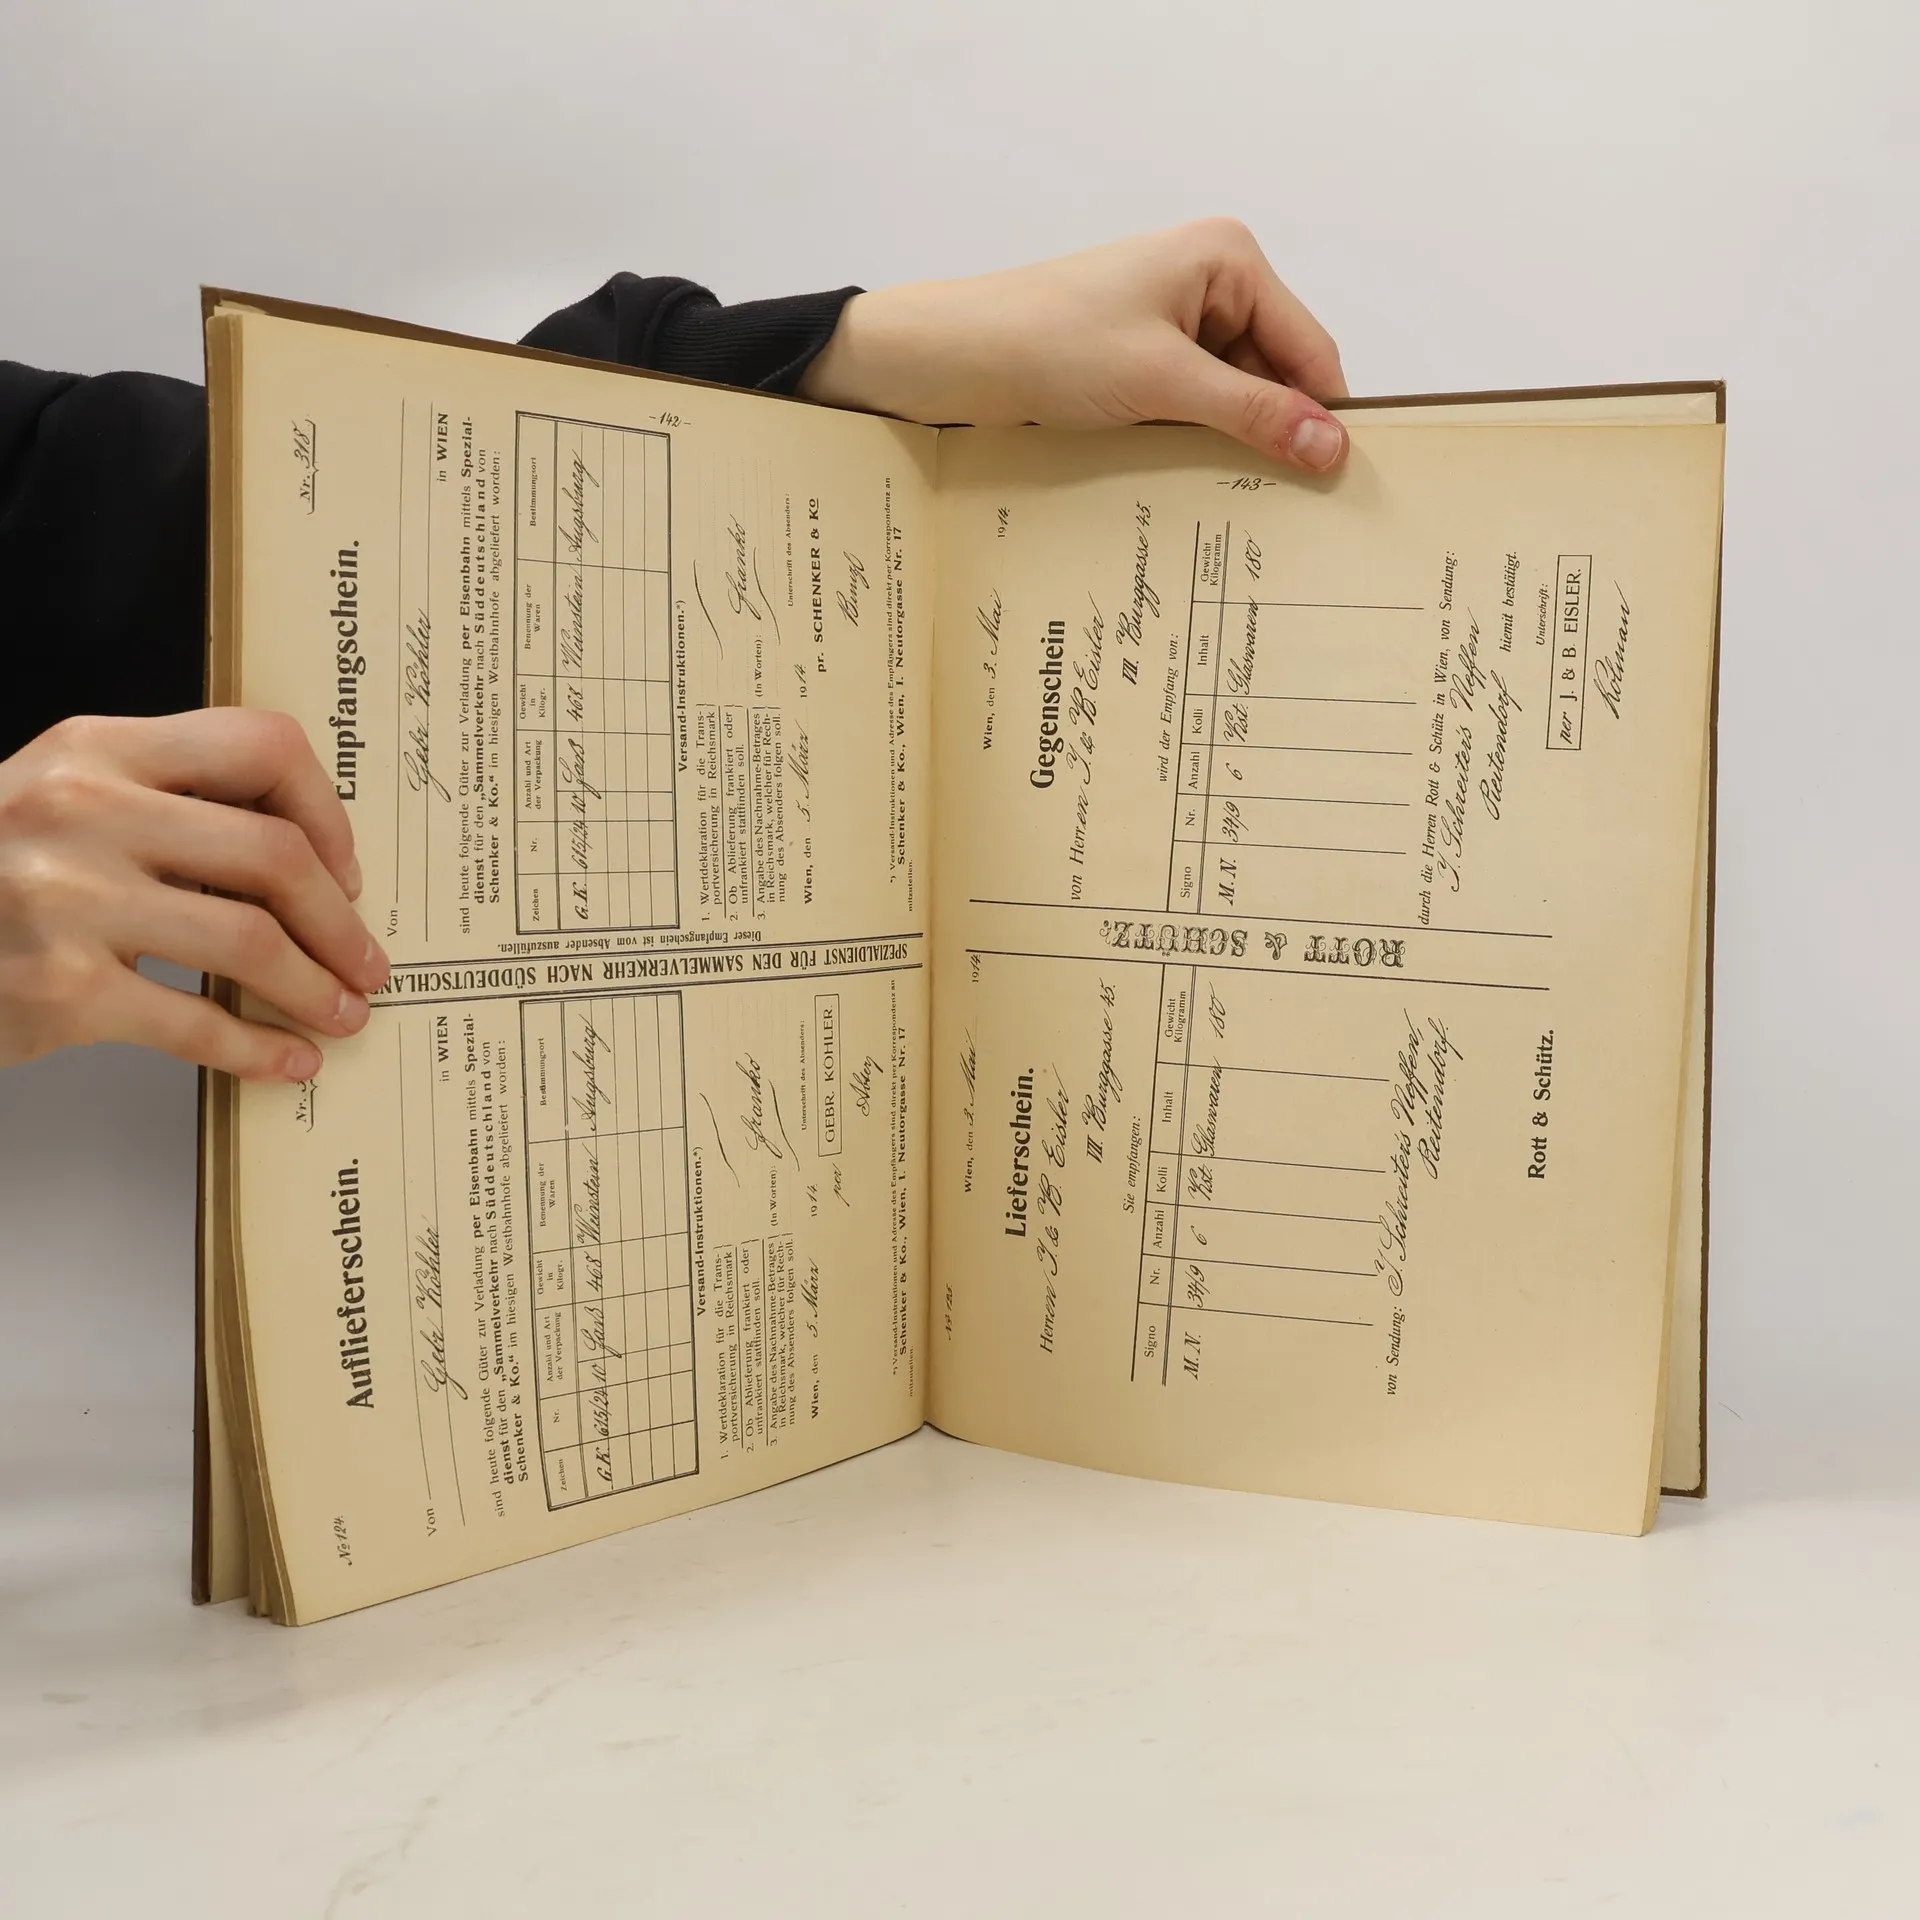 -142-
Nº 124.
Auflieferschein.
Von
Gebr. Köhler
in WIEN
sind heute folgende Güter zur Verladung per Eisenbahn mittels Spezial-
dienst für den „Sammelverkehr nach Süddeutschland von
Schenker & Ko.“ im hiesigen Westbahnhofe abgeliefert worden:
Zeichen Nr. Anzahl und Art der Verpackung Gewicht in Kilogr. Benennung der Waren Bestimmungsort
G.K. 615/24 10 Fass 468 Weinstein Augsburg
Versand-Instruktionen.*)
1. Wertdeklaration für die Trans-
portversicherung in Reichsmark
2. Ob Ablieferung frankiert oder
unfrankiert stattfinden soll.
Franko
3. Angabe des Nachnahme-Betrages
in Reichsmark, welcher für Rech-
nung des Absenders folgen soll.
(In Worten):
Wien, den 5. März 1914.
Unterschrift des Absenders:
per GEBR. KÖHLER
*) Versand-Instruktionen und Adresse des Empfängers sind direkt per Korrespondenz an
Schenker & Ko., Wien, I. Neutorgasse Nr. 17
mitzuteilen.
SPEZIALDIENST FÜR DEN SAMMELVERKEHR NACH SÜDDEUTSCHLAND
Dieser Empfangschein ist vom Absender auszufüllen.
Nr. 318
Empfangschein.
Von
Gebr. Köhler
in WIEN
sind heute folgende Güter zur Verladung per Eisenbahn mittels Spezial-
dienst für den „Sammelverkehr nach Süddeutschland von
Schenker & Ko.“ im hiesigen Westbahnhofe abgeliefert worden:
Zeichen Nr. Anzahl und Art der Verpackung Gewicht in Kilogr. Benennung der Waren Bestimmungsort
G.K. 615/24 10 Fass 468 Weinstein Augsburg
Versand-Instruktionen.*)
1. Wertdeklaration für die Trans-
portversicherung in Reichsmark
2. Ob Ablieferung frankiert oder
unfrankiert stattfinden soll.
Franko
3. Angabe des Nachnahme-Betrages
in Reichsmark, welcher für Rech-
nung des Absenders folgen soll.
(In Worten):
Wien, den 5. März 1914
Unterschrift des Absenders:
pr. SCHENKER & Ko
*) Versand-Instruktionen und Adresse des Empfängers sind direkt per Korrespondenz an
Schenker & Ko., Wien, I. Neutorgasse Nr. 17
mitzuteilen.
-143-
Wien, den 3. Mai 1914.
Lieferschein.
Herren J. & B. Eisler
VII. Burggasse 45.
Sie empfangen:
Signo Nr. Anzahl Kolli Inhalt Gewicht Kilogramm
M.N. 34/9 6 Kst. Glaswaren 180
von Sendung: J. Schreiter's Neffen,
Reitendorf.
Rott & Schütz.
ROTT & SCHÜTZ.
Wien, den 3. Mai 1914.
Gegenschein
von Herren J. & B. Eisler
VII. Burggasse 45.
wird der Empfang von:
Signo Nr. Anzahl Kolli Inhalt Gewicht Kilogramm
M.N. 34/9 6 Kst. Glaswaren 180
durch die Herren Rott & Schütz in Wien, von Sendung:
J. Schreiter's Neffen
Reitendorf hiemit bestätigt.
Unterschrift:
per J. & B. EISLER.
Kolman